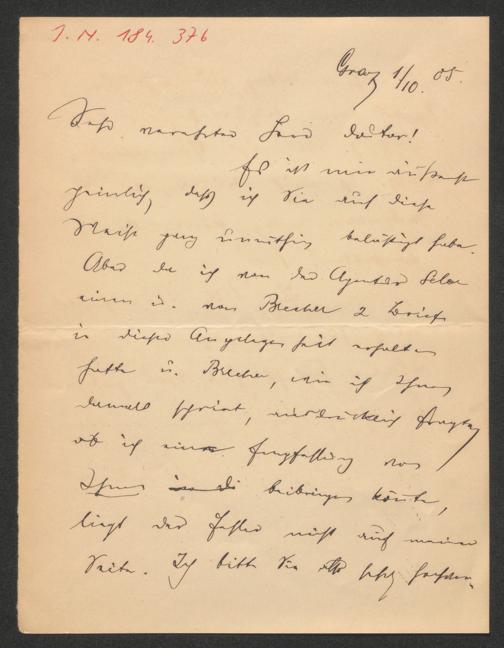 I. N. 184. 376
Graz 1/10. 05.
Sehr verehrter Herr Doctor!
Es ist mir äußerst
peinlich, daß ich Sie auf diese
Weise ganz unnöthig belästigt habe.
Aber da ich von der Agentur
einen u. von Brecher 2 Briefe
in dieser Angelegenheit erhalten
hatte u. Brecher, wie ich Ihnen
damals schrieb, ausdrücklich fragte,
ob ich eine Empfehlung von
Ihnen beibringen könnte,
liegt der Fehler nicht auf meiner
Seite. Ich bitte Sie sehr